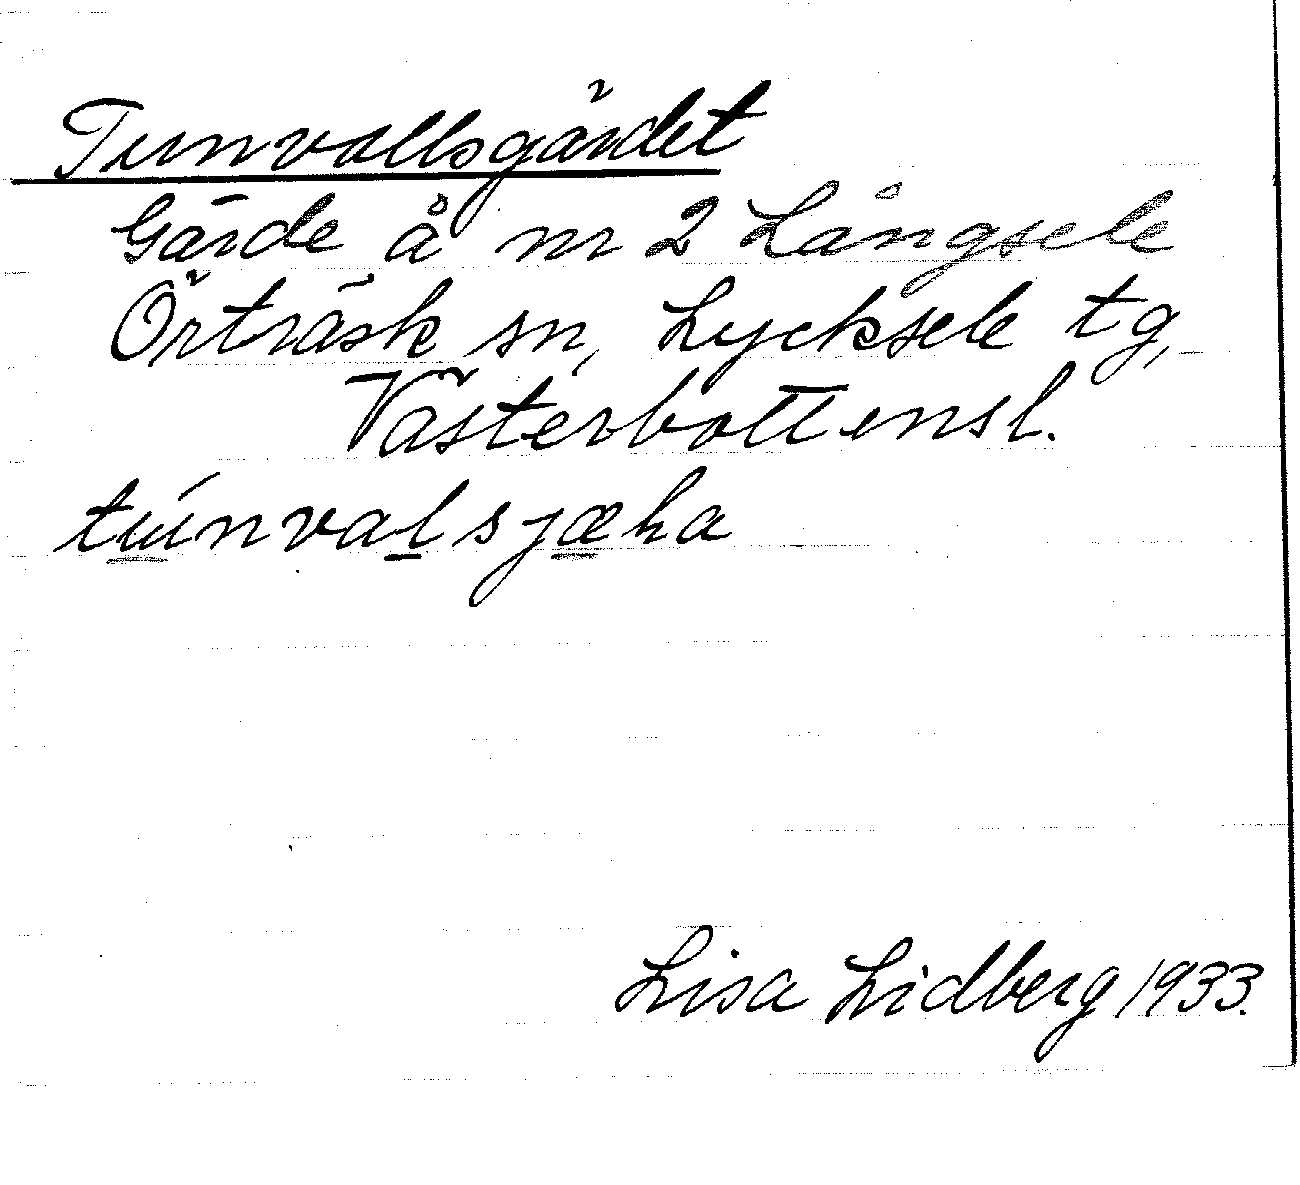 Tunvallsgärdet
Gärde å nr 2 Långsele
Örträsk sn, Lycksele tg,
Västerbottensl.
túnvalsjæha
Lisa Lidberg 1933.